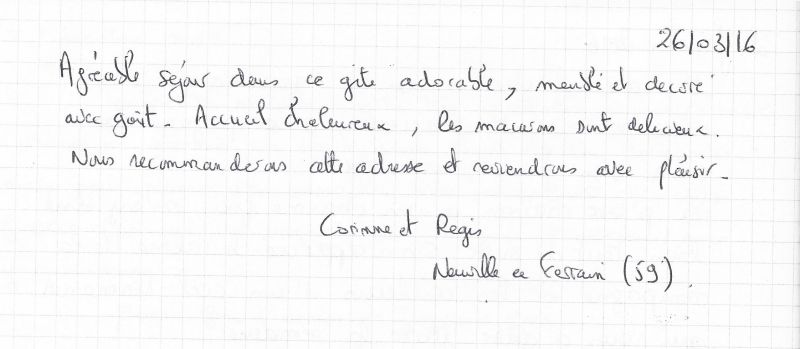 26/03/16
Agréable séjour dans ce gite adorable, meublé et decoré
avec goût. Accueil chaleureux, les macarons sont delicieux.
Nous recommanderons cette adresse et reviendrons avec plaisir.
Corinne et Regis
Neuville en Ferrain (59).